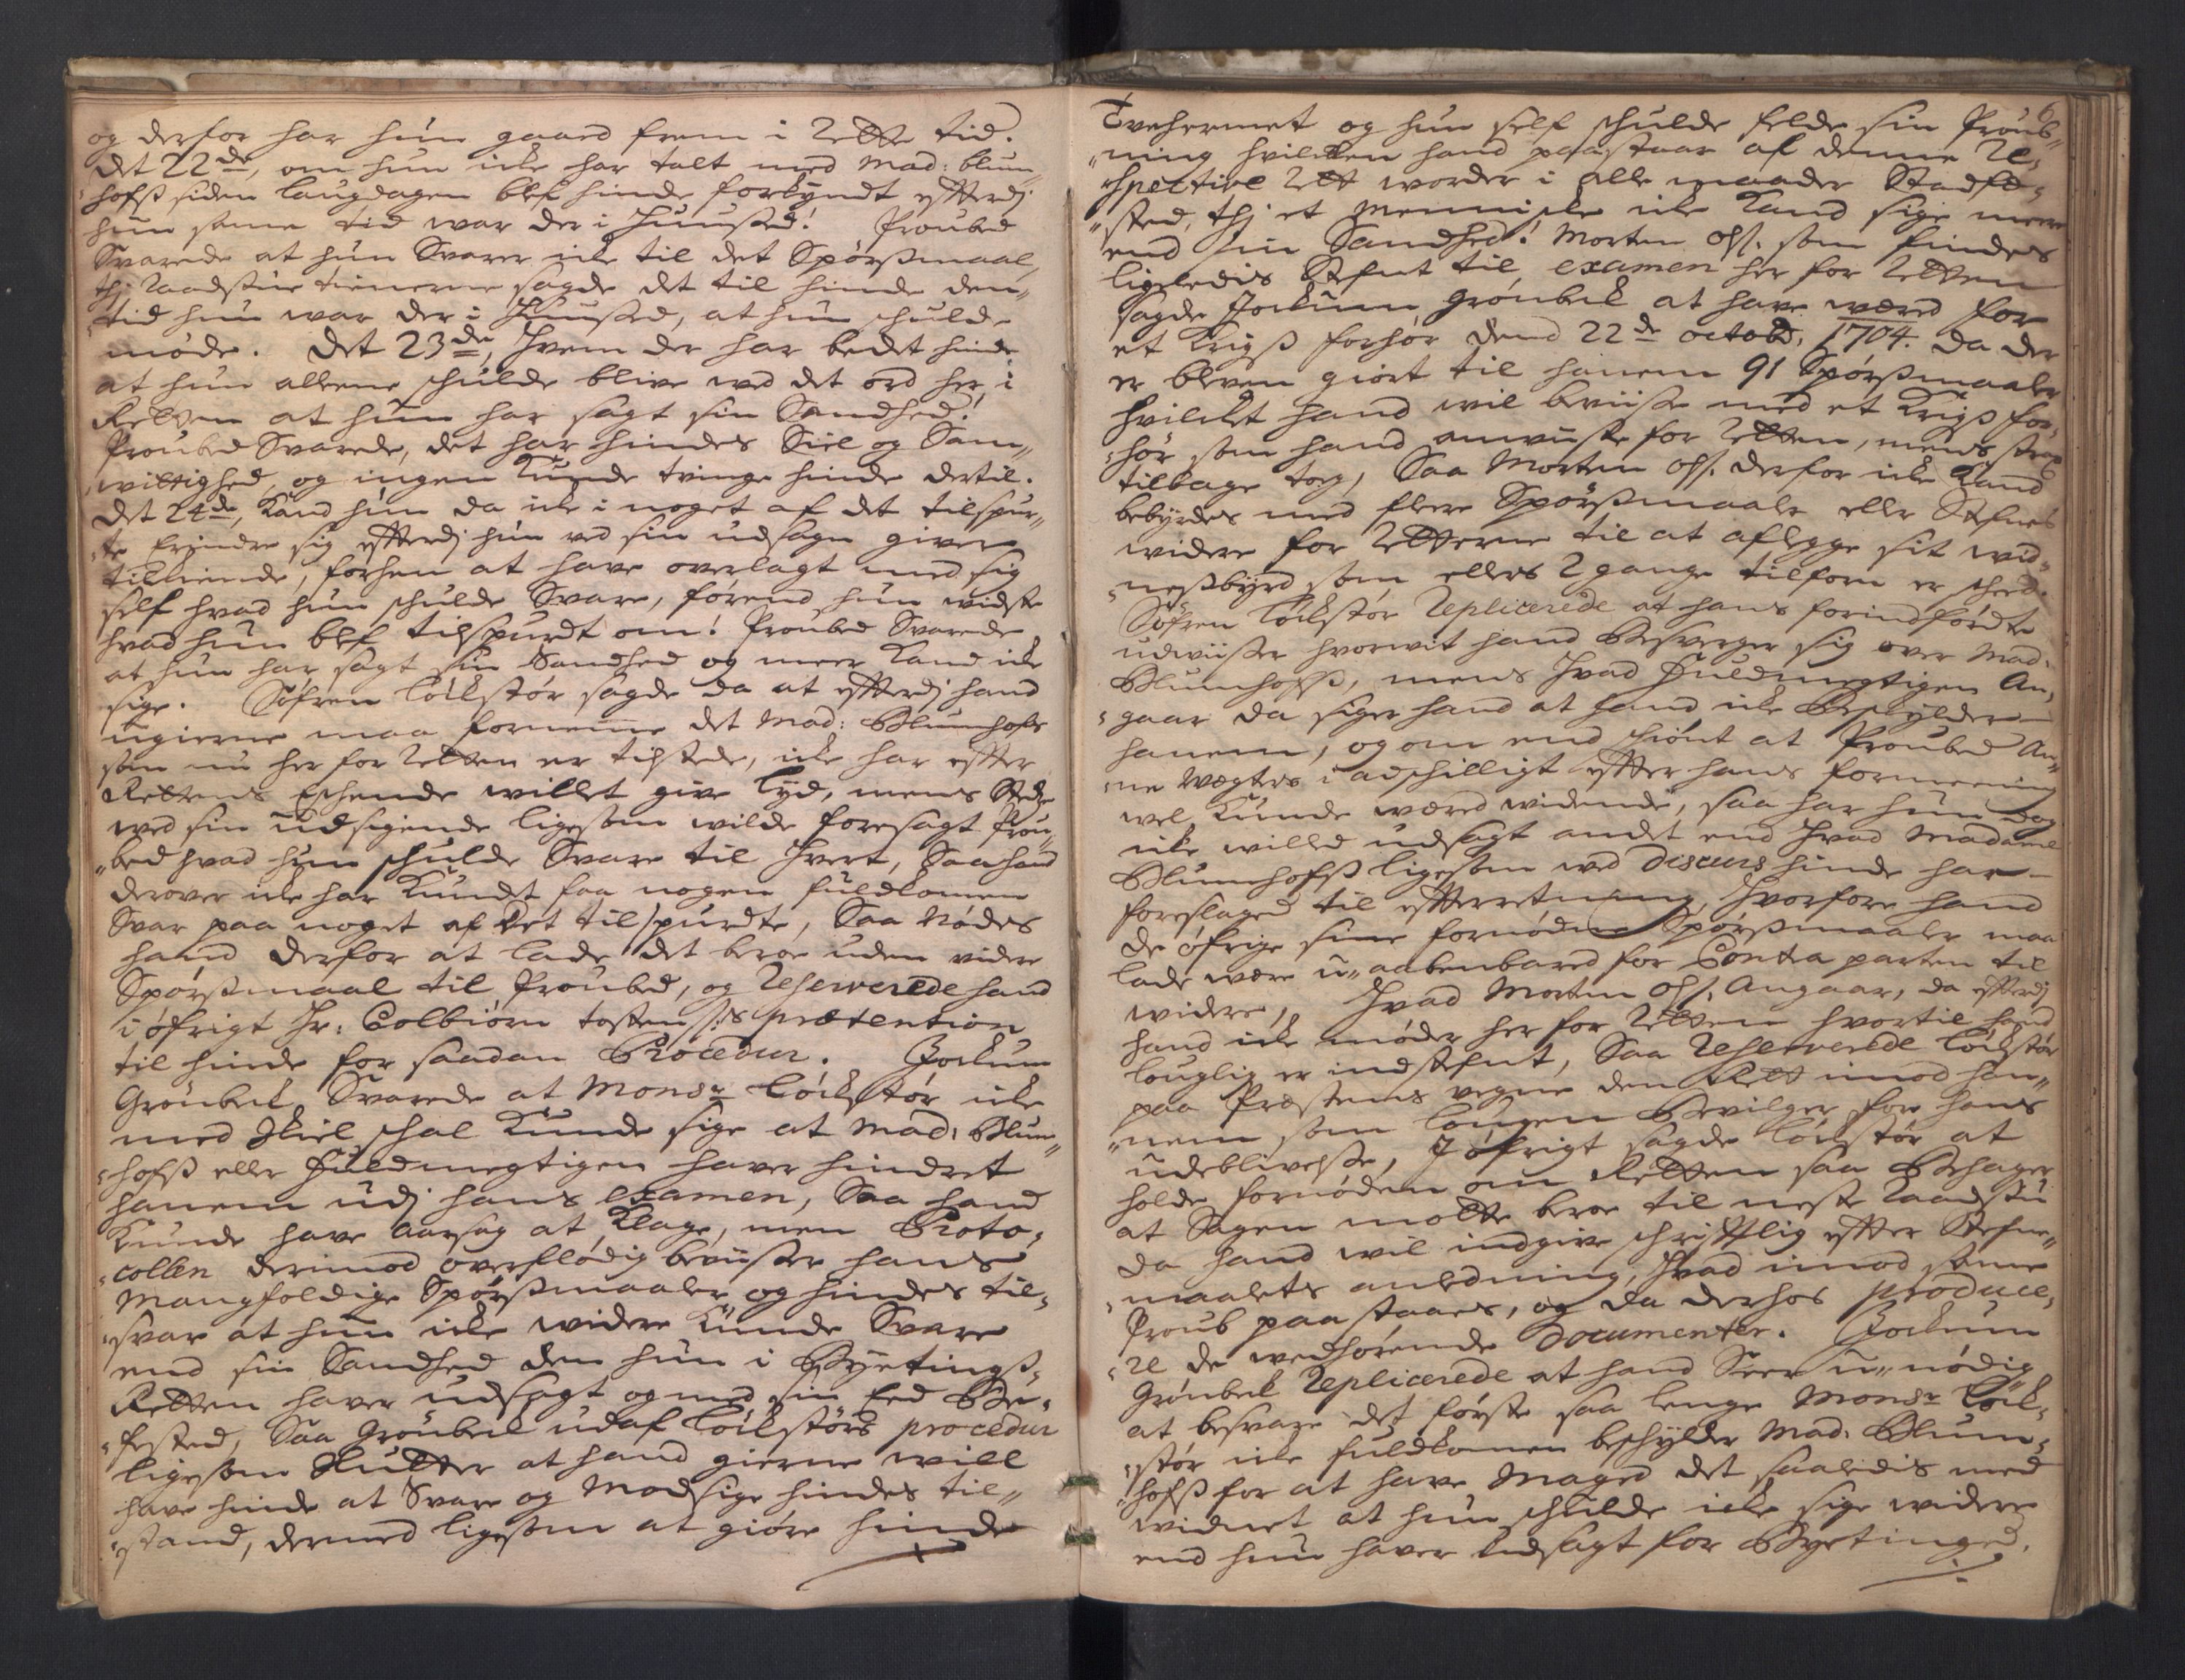 og derfor har hun gaaed frem i Rette tid.
Det 22de, om hun icke har talt med Mad: Blum„
„hofs siden laugdagen blef hinde forkyndt efterdj
hun samme tid war der i Huuset! Proubed
Svarede at hun Svarer icke til det Spørsmaal,
thj Raadstue tienerne sagde det til hinde den„
tid hun war der i Huuset, at hun schulde
møde. Det 23de, Hvem der har bedet hinde
at hun allene schulde blive wed det ord her i
Retten at hun har sagt sin Sandhed!
Proubed Svarede, det har hindes Siel og Sam„
„wittighed, og ingen Kunde tvinge hinde dertil.
Det 24de, Kand hun da icke i noget af det tilspur„
„te Erindre sig efterdj hun ved sin udsagn giver
tilkiende, forhen at have overlagt med sig
self hvad hun schulde Svare, førend hun widste
hvad hun blef tilspurdt om! Proubed Svarede
at hun har sagt sin Sandhed og meer Kand icke
sige. Søfren Løckstør sagde da at efterdj hand
ugierne maa fornemme det Mad: Blumhofs
som nu her for Retten er tilstede, icke har efter
Rettens Eschende willet give lyd, mens Stedse
med sin udsigende ligesom wilde foresagt Prou„
„bed hvad hun schulde Svare til Hvert, Saa hand
derover icke har Kundt faa nogen fuldkomen
Svar paa noget af det tilspurdte, Saa Nødes
hand derfor at lade det beroe uden videre
Spørsmaal til Proubed, og Reserverede hand
i øfrigt Hr: Colbiørn tostensøns prætention
til hinde for saadan Procedur. Jockum
Grønbeck Svarede at Monsr Løckstør icke
med Skiel schal Kunde sige at Mad: Blum„
„hofs eller Fuldmegtigen haver hindret
hanem udj hans examen, Saa hand
Kunde have Aarsag at Klage, men Proto„
„collen derimod overflødig beviiser hans
Mangfoldige Spørsmaaler og hindes til„
„svar at hun icke widere Kunde Svare
end sin Sandhed den hun i Byetings„
Retten haver udsagt og med sin Eed Be„
„fested, Saa Grønbeck udaf Løckstørs procedur
ligesom Slutter at hand gierne will
have hinde at Svare og Modsige hindes til„
„stand, dermed ligesom at giøre hinde
6
Tvehermet og hun self schulde felde sin Proub„
„ning hvilcken hand paastaar af denne Re„
„spective Rett worder i alle maader Stadfe„
„sted, thj et Menniske icke Kand sige meere
end sin Sandhed! Morten Ols. som findes
ligeledis Stefnt til examen her for Retten
sagde Jockum Grønbeck at have wæred for
et Krigs forhør dend 22de octobr. 1704. da der
er bleven giort til hanem 91 Spørsmaaler
hvilcket hand wil beviise med et Krigs for„
„hør som hand anwiiste for Retten, mens strax
tilbage tog, Saa Morten Ols. derfor icke Kand
bebyrdes med flere Spørsmaaler eller Stefnes
widere for Retterne til at aflegge sit wid„
„nesbyrd som ellers 2 gange tilforn er scheed.
Søfren Løckstør Replicerede at hans forindførdte
udwiiser hvorwit hand Besverger sig over Mad:
Blumhofs, mens Hvad Fuldmegtigen An„
„gaar da siger hand at hand icke Beschylder
hanem, og om end schiønt at Proubed An„
„ne Wegters i adschilligt efter hans formeening
wel Kunde wæred widende, saa har hun dog
icke willed udsagt andet end Hvad Madame
Blumhofs ligesom wed Discurs hinde har
foreslaged til efterretning, Hvorfore hand
de øfrige sine fornødne Spørsmaaler maa
lade wære u„aabenbared for Contra parten til
widere, Hvad Morten Ols. Angaar, da efterdj
hand icke møder her for Retten hvortil hand
louglig er indstefnt, Saa Reserverede Løckstør
paa Præstens vegne den Rett imod ha„
„nem som Lougen Bevilger for hans
udeblivelse, I øfrigt sagde Løckstør at
holde fornøden om Retten saa Behager
at Sagen motte beroe til neste Raadstue
da hand wil indgive schriftlig efter Stefne„
„maalets anledning, Hvad imod samme
Proub paastaaes, og da derhos produce„
„re de wedhørende Documenter. Jockum
Grønbeck Replicerede at hand Seer u„nødig
at besvare det første saa lenge Monsr Løck„
„stør icke fuldkomen beschylder Mad: Blum„
„hofs for at have Maged det saaledis med
widnet at hun schulde icke sige widere
end hun haver udsagt for Byetinged.